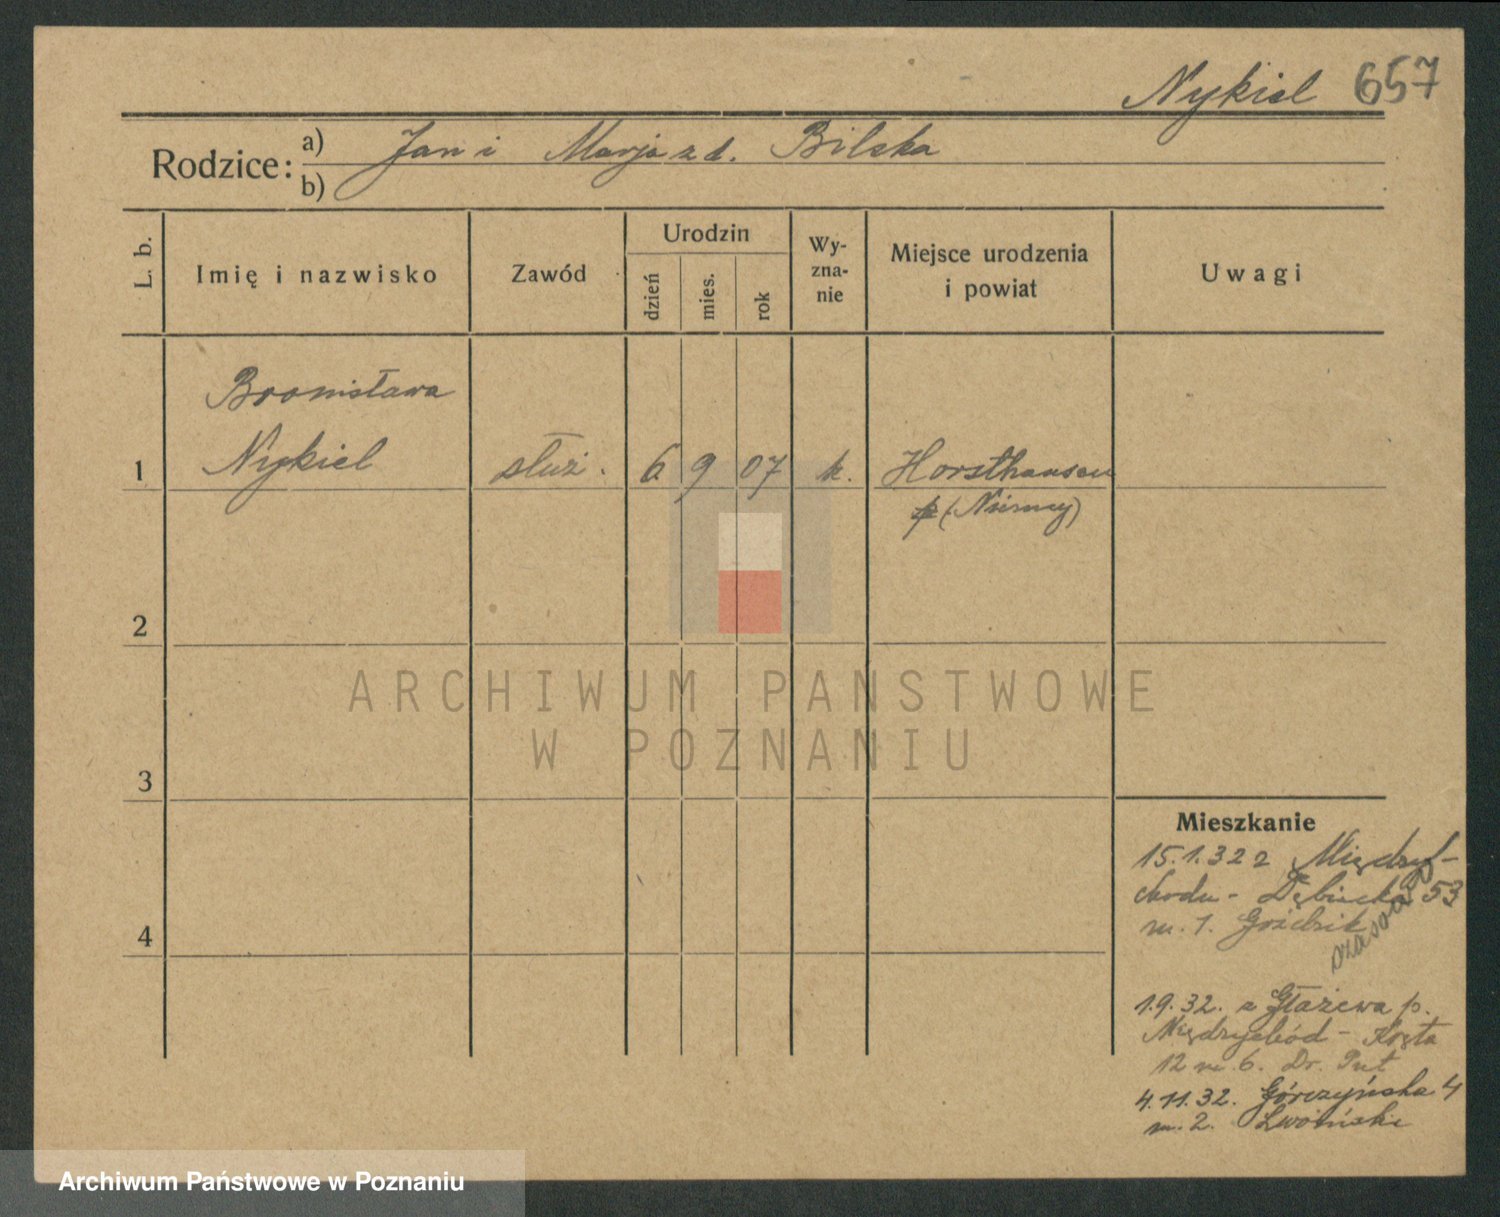 Nykiel 657
Rodzice: a) Jan i Marja z d. Bilska
b)
L. b.
Imię i nazwisko
Zawód
Urodzin
dzień
mies.
rok
Wy-
zna-
nie
Miejsce urodzenia
i powiat
Uwagi
Bronisława
1 Nykiel służ. 6 9 07 k. Horsthausen
p (Niemcy)
2
3
4
ARCHIWUM PAŃSTWOWE
W POZNANIU
Mieszkanie
15.1.32 z Między-
chodu - Dębiecka 53
m. 1. Goździk
czasowo
1.9.32. z Głażewa p.
Międzychód - Kręta
12 m. 6. Dr.
4.11.32. Górczyńska 4
m. 2.
Archiwum Państwowe w Poznaniu